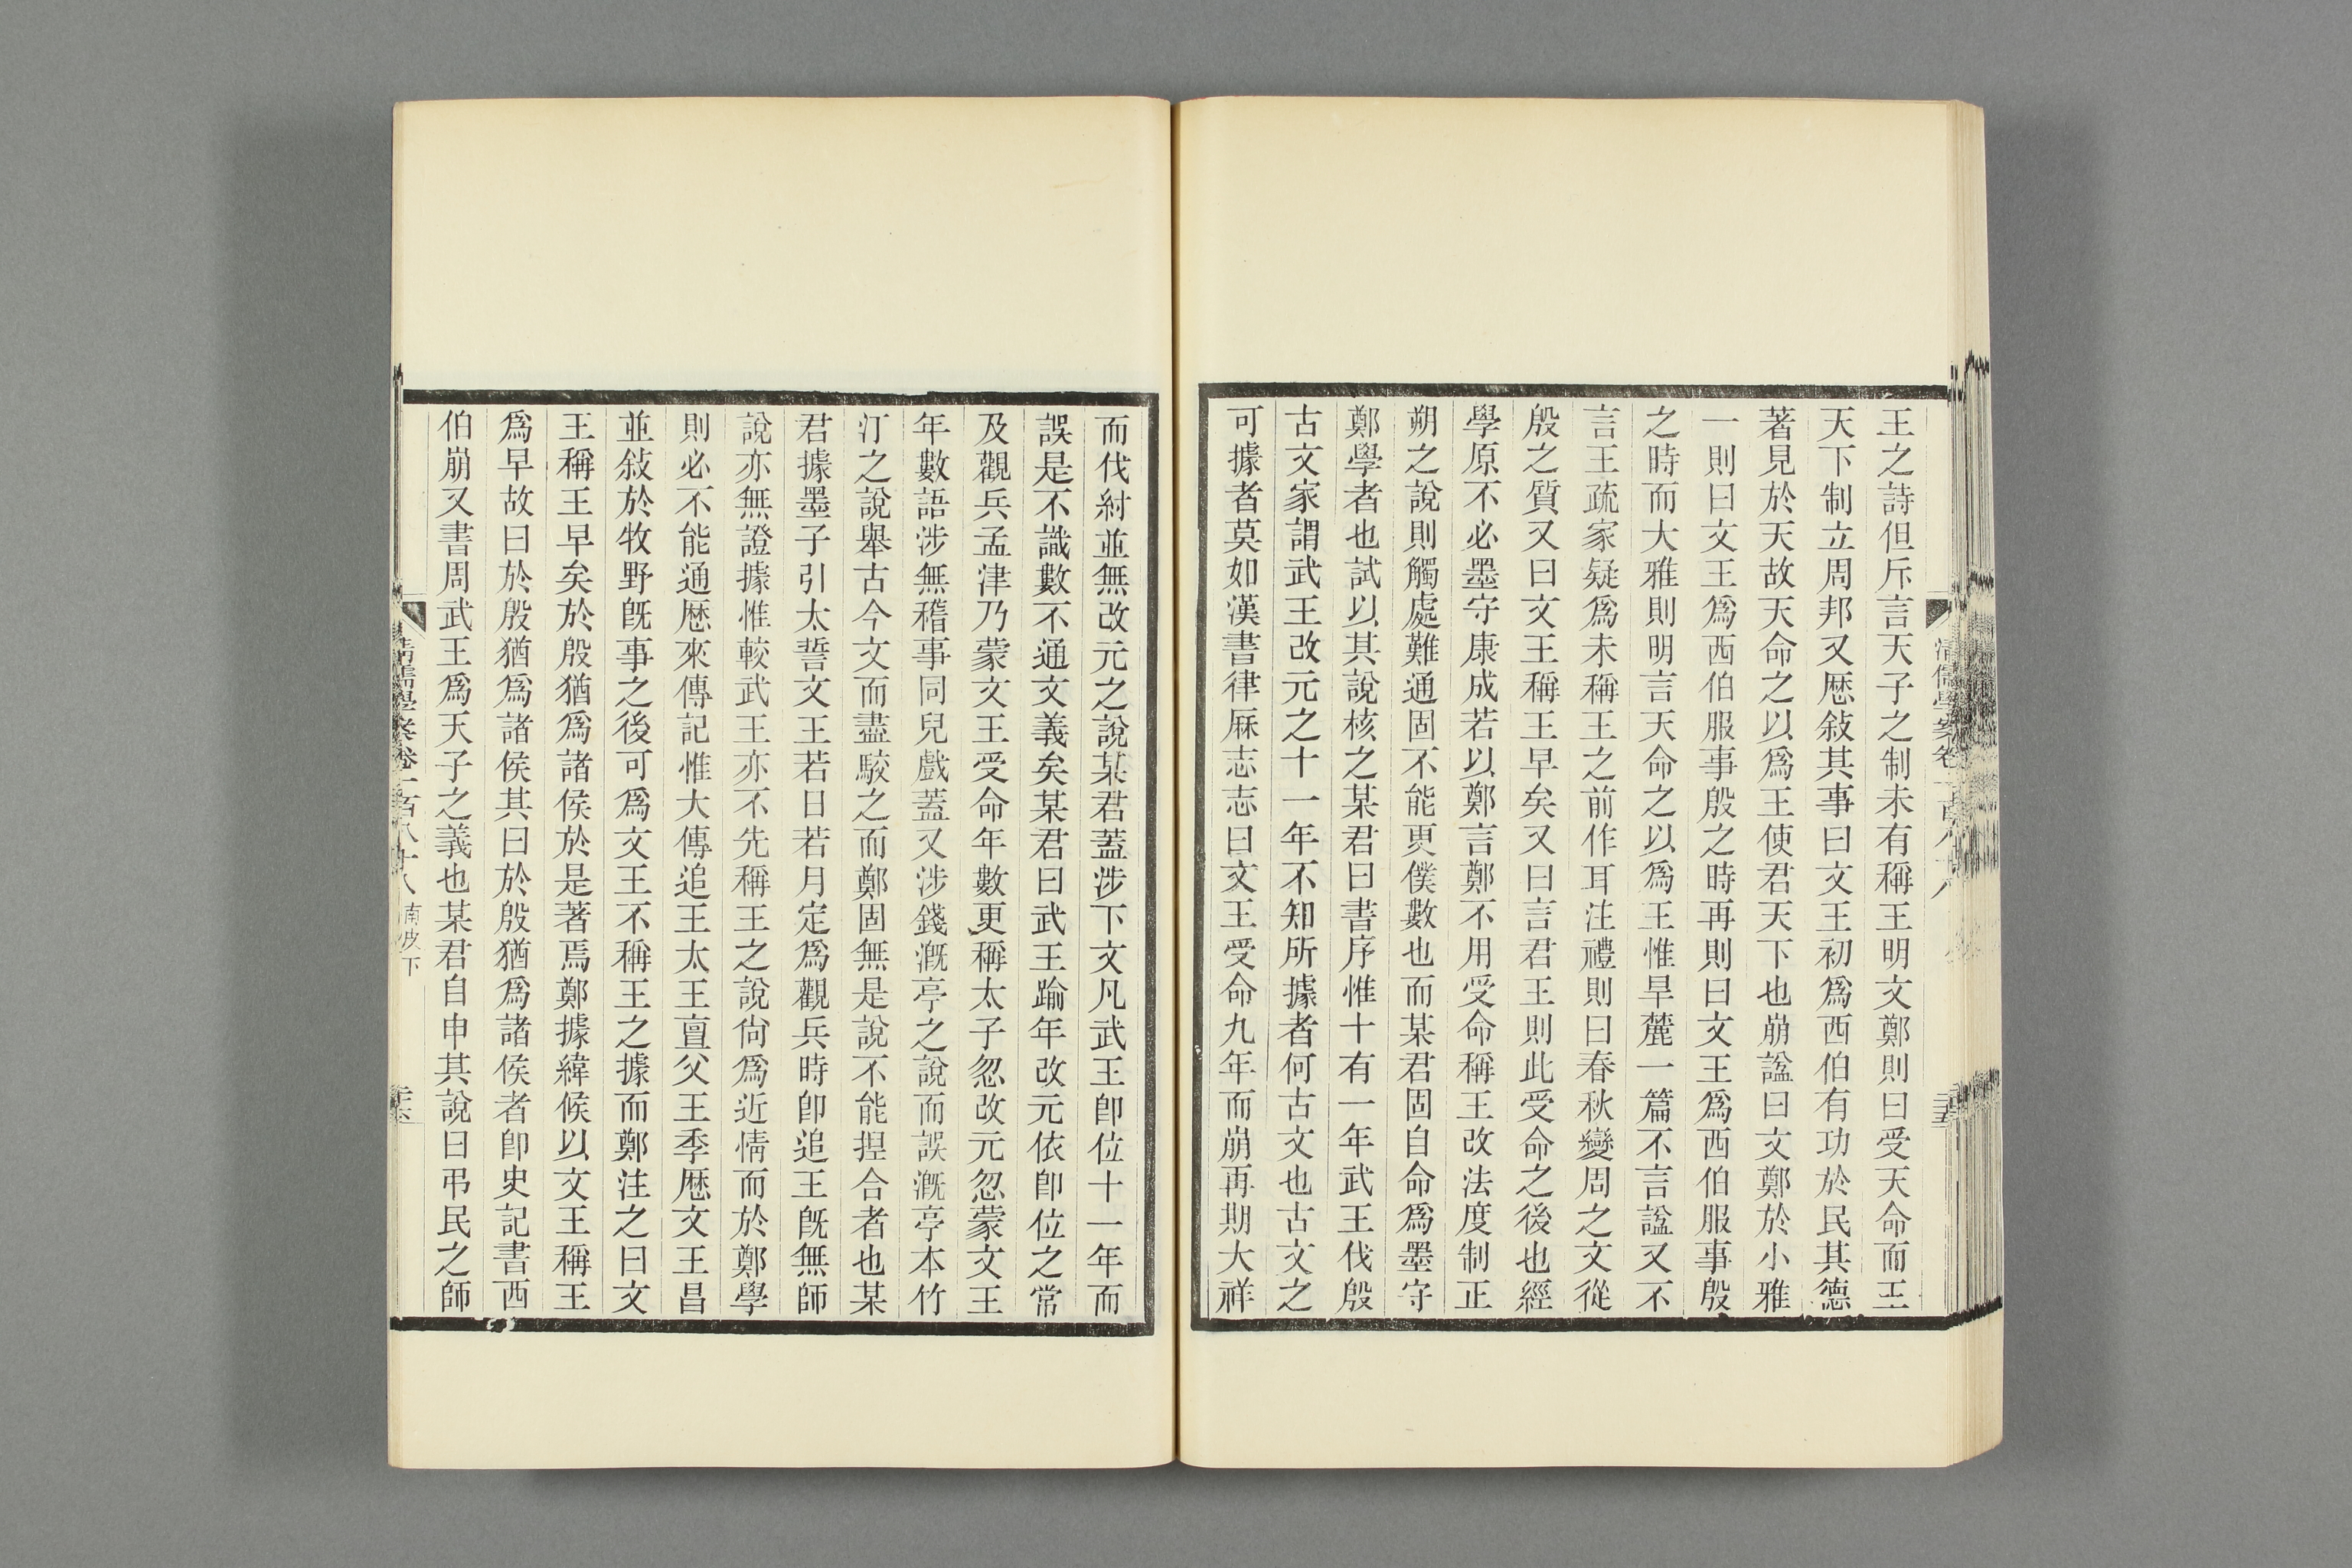 王之詩但斥言天子之制未有稱王明文鄭則曰受天命而王
天下制立周邦又厯敍其事曰文王初爲西伯有功於民其德
著見於天故天命之以爲王使君天下也崩諡曰文鄭於小雅
一則曰文王爲西伯服事殷之時再則曰文王爲西伯服事殷
之時而大雅則明言天命之以爲王惟旱麓一篇不言諡又不
言王疏家疑爲未稱王之前作耳注禮則曰春秋變周之文從
殷之質又曰文王稱王早矣又曰言君王則此受命之後也經
學原不必墨守康成若以鄭言鄭不用受命稱王改法度制正
朔之說則觸處難通固不能更僕數也而某君固自命爲墨守
鄭學者也試以其說核之某君曰書序惟十有一年武王伐殷
古文家謂武王改元之十一年不知所據者何古文也古文之
可據者莫如漢書律厤志志曰文王受命九年而崩再期大祥
而伐紂並無改元之說某君蓋涉下文凡武王卽位十一年而
誤是不識數不通文義矣某君曰武王踰年改元依卽位之常
及觀兵孟津乃蒙文王受命年數更稱太子忽改元忽蒙文王
年數語涉無稽事同兒戲蓋又涉錢漑亭之說而誤漑亭本竹
汀之說舉古今文而盡駮之而鄭固無是說不能捏合者也某
君據墨子引太誓文王若日若月定爲觀兵時卽追王旣無師
說亦無證據惟較武王亦不先稱王之說尙爲近情而於鄭學
則必不能通厯來傳記惟大傳追王太王亶父王季厯文王昌
並敍於牧野旣事之後可爲文王不稱王之據而鄭注之曰文
王稱王早矣於殷猶爲諸侯於是著焉鄭據緯候以文王稱王
爲早故曰於殷猶爲諸侯其曰於殷猶爲諸侯者卽史記書西
伯崩又書周武王爲天子之義也某君自申其說曰弔民之師
清儒學案卷一百八十八 南皮下